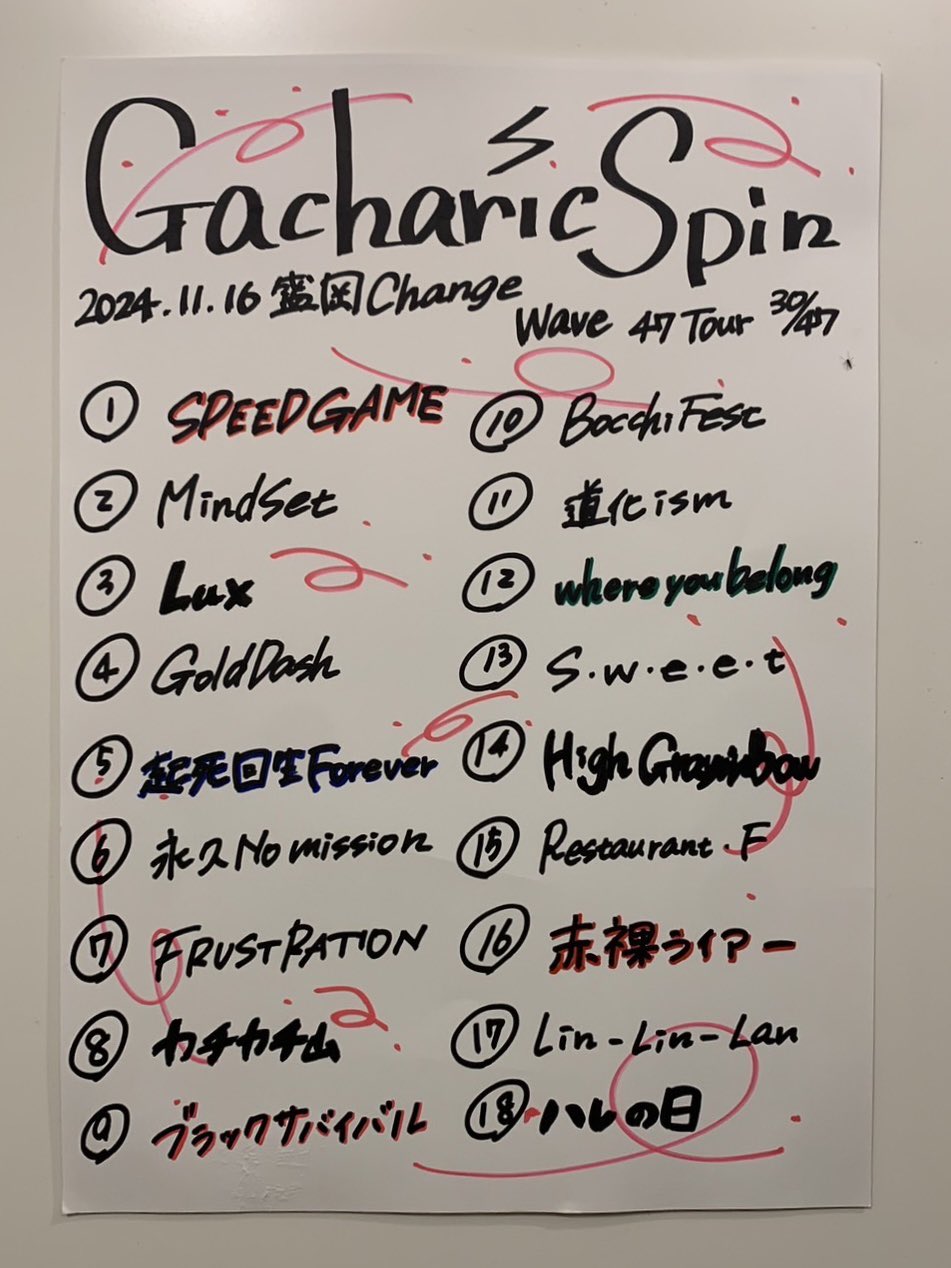 Gacharic Spin
2024.11.16 盛岡Change
Wave 47 Tour 30/47
① SPEED GAME
② MindSet
③ Lux
④ GoldDash
⑤ 起死回生Forever
⑥ 永久No mission
⑦ FRUSTRATION
⑧ カチカチ山
⑨ ブラックサバイバル
⑩ BocchiFest
⑪ 道化ism
⑫ where you belong
⑬ S.w.e.e.t
⑭ High Grayinbow
⑮ Restaurant.F
⑯ 赤裸ライアー
⑰ Lin-Lin-Lan
⑱ ハレの日